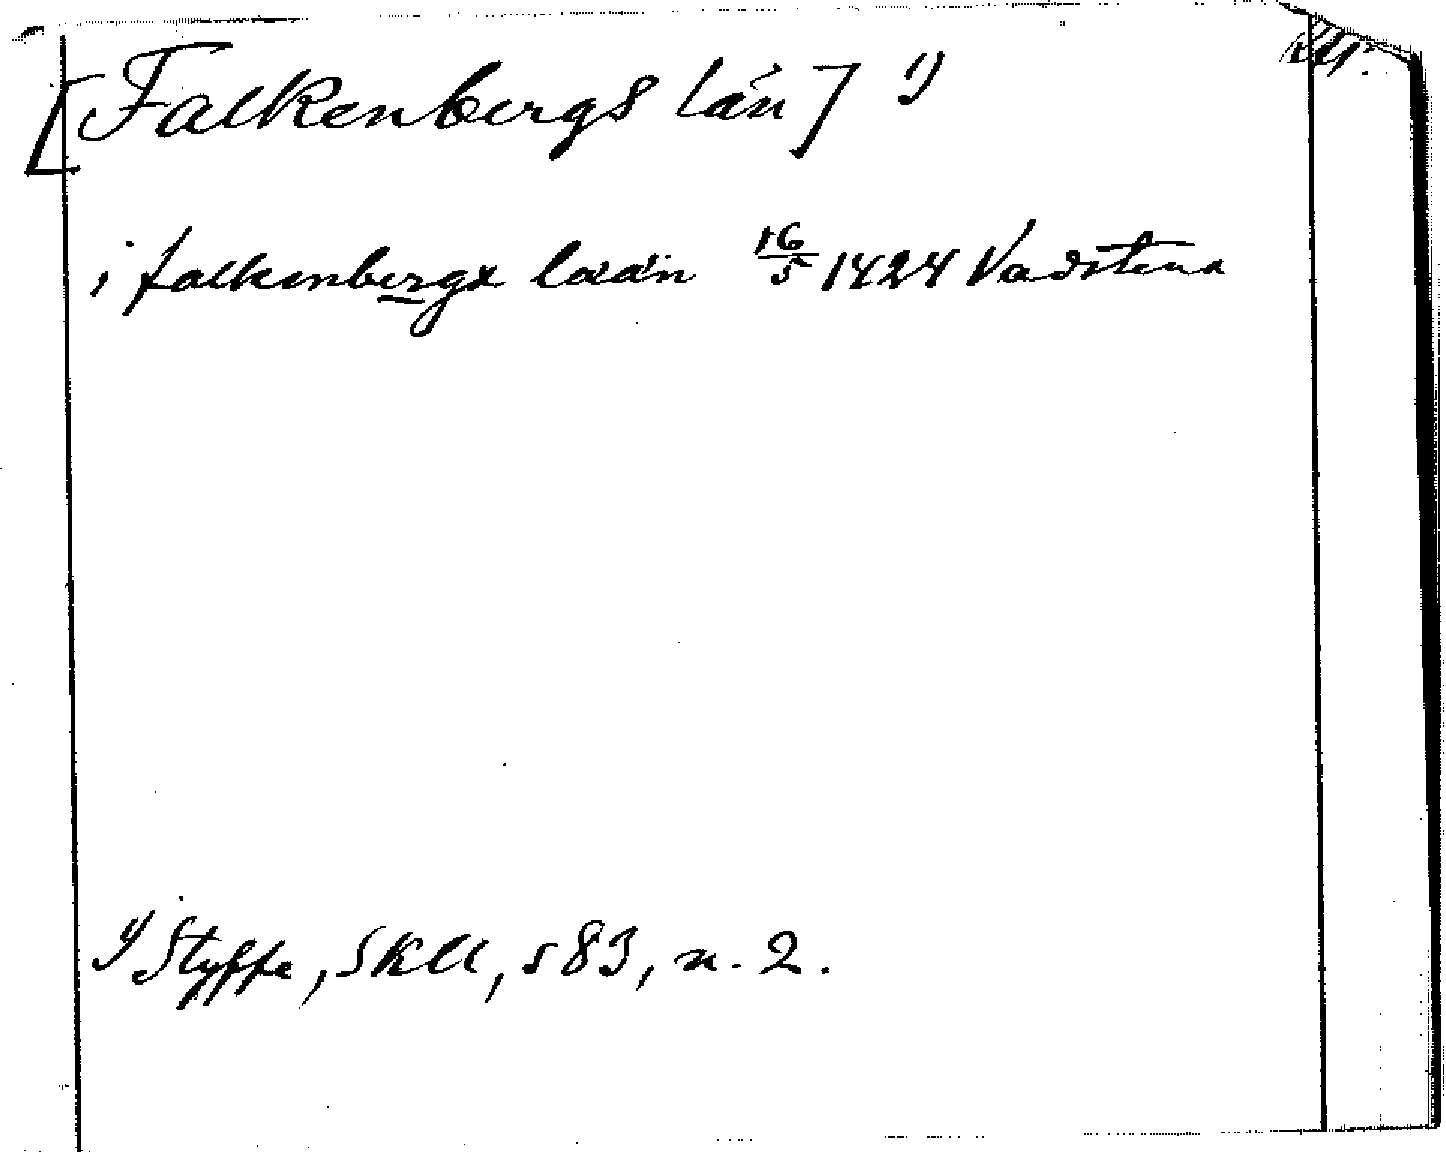 [Falkenbergs län] 1)
i falkenbergx lään 16/5 1424 Vadstena
1) Styffe, SKU, s 83, n. 2.